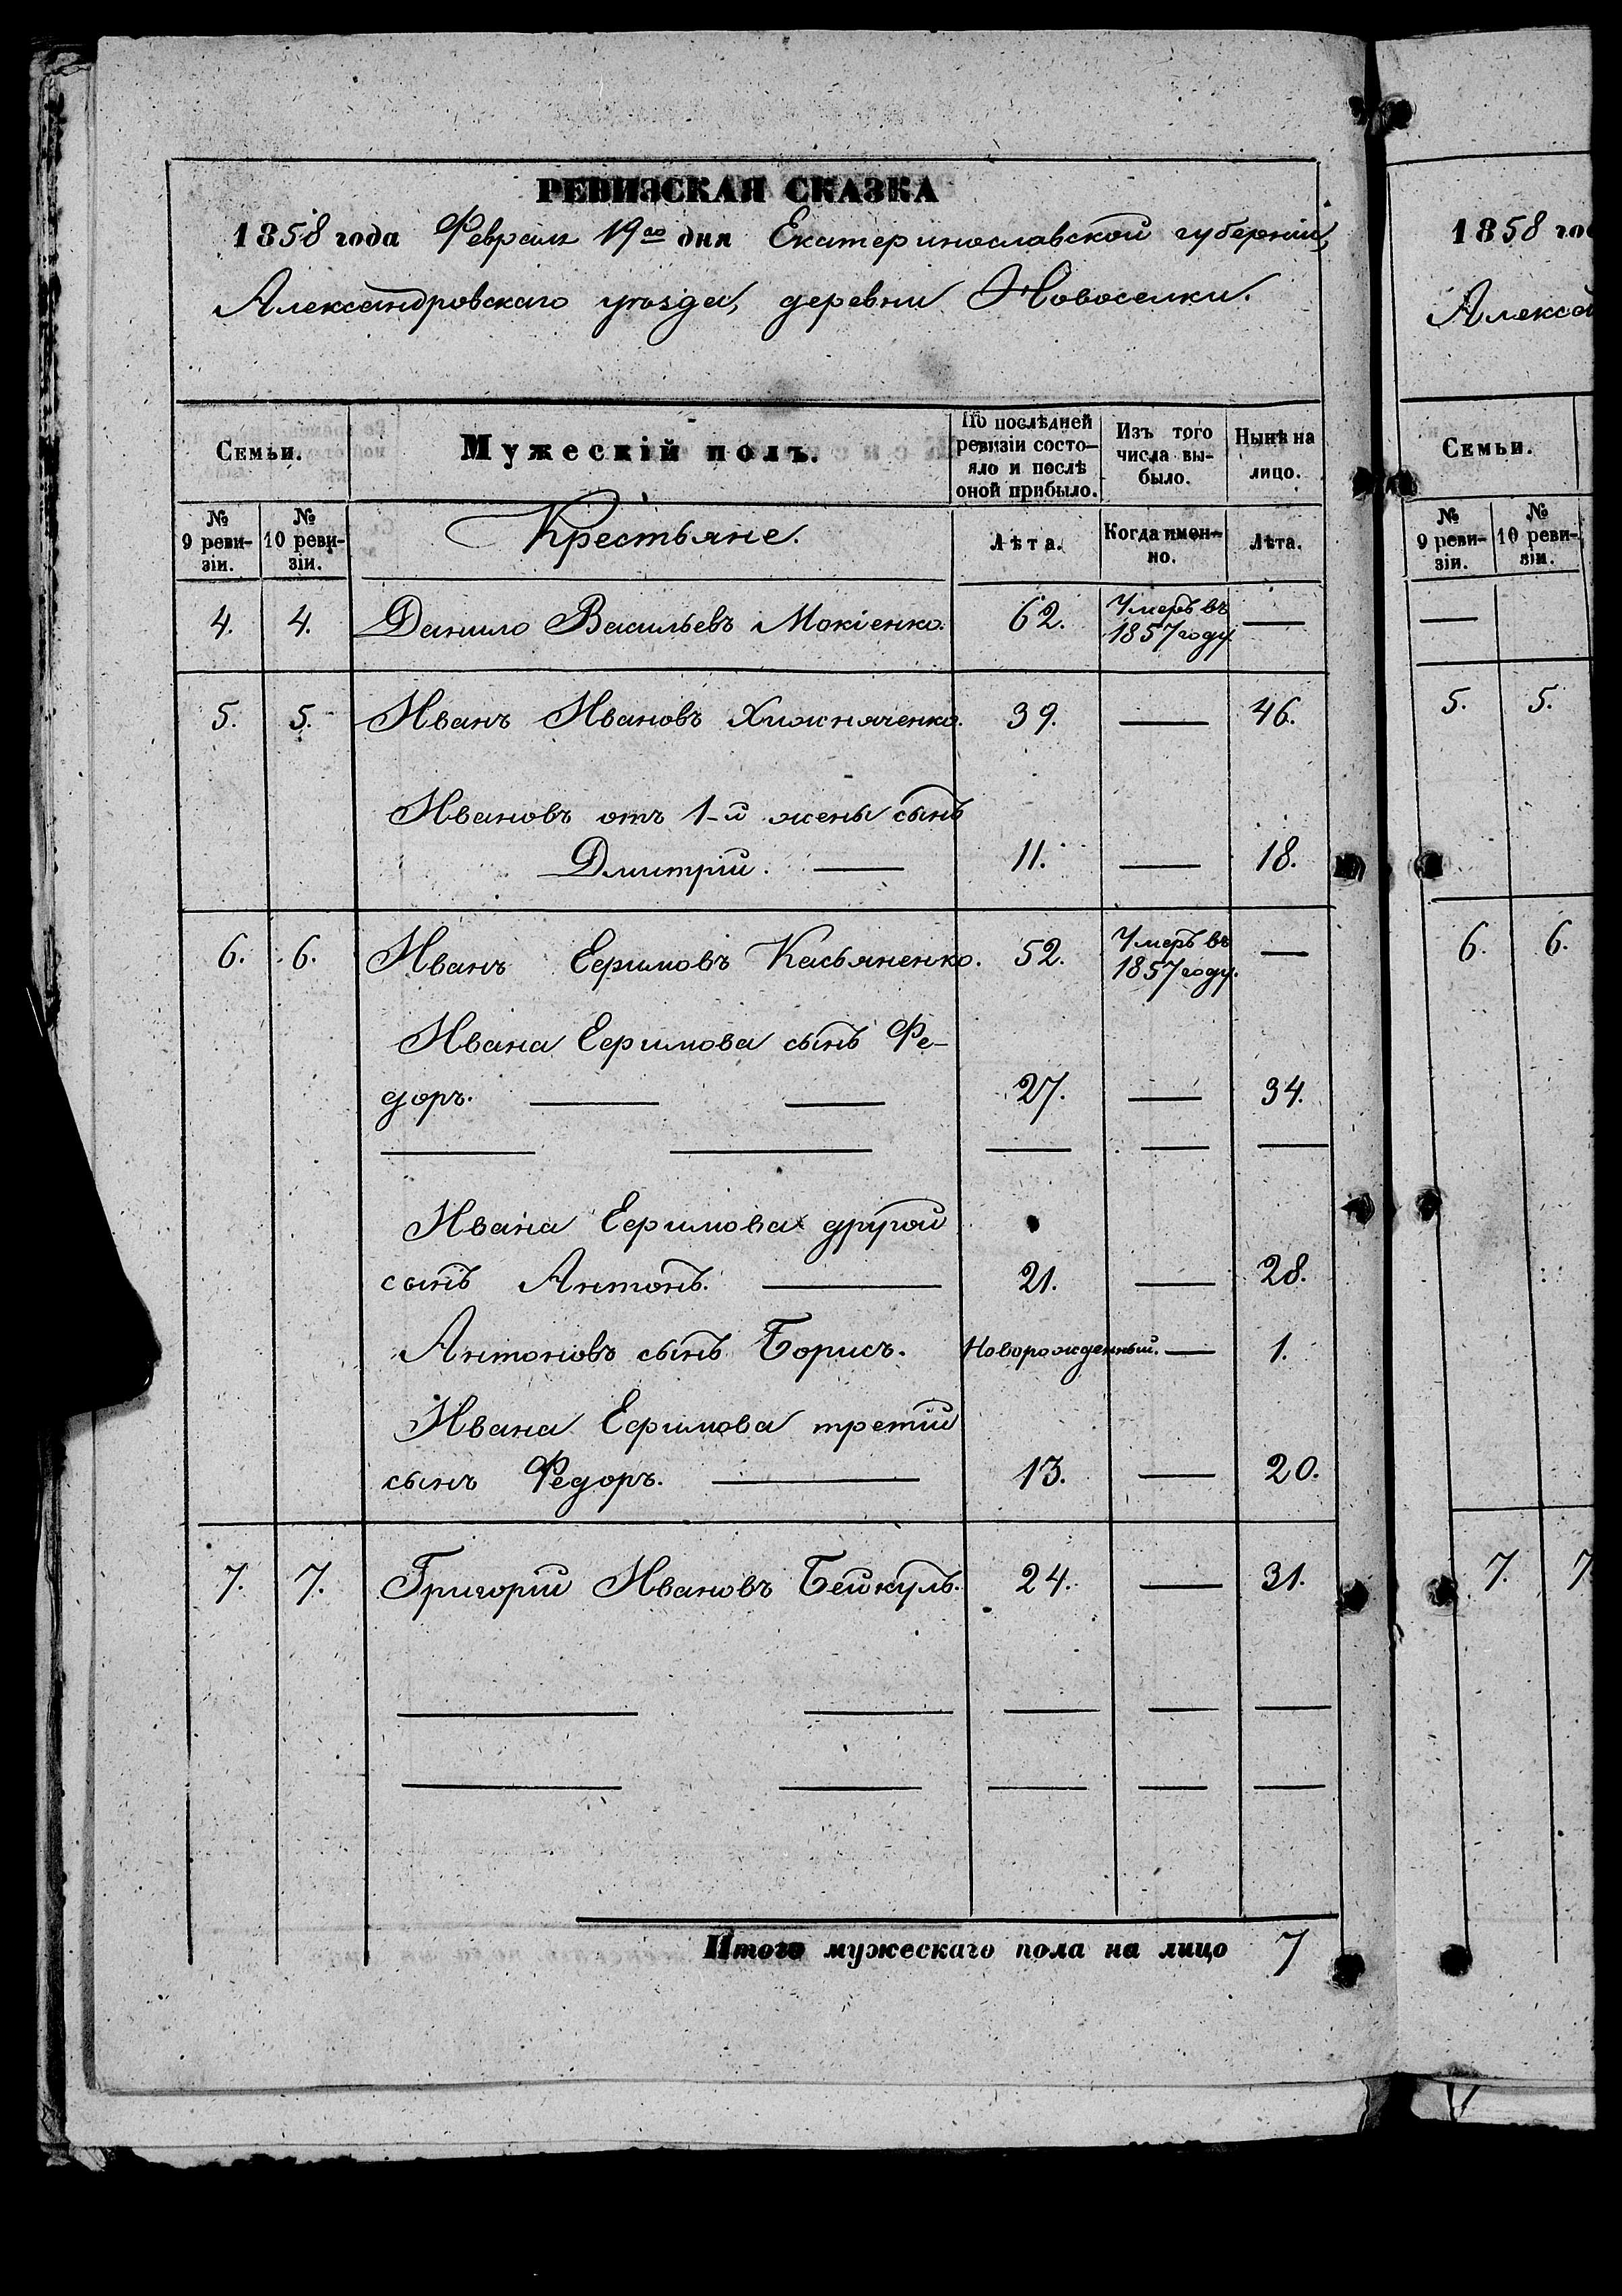 РЕВИЗСКАЯ СКАЗКА
1858 года Февраля 19го дня Екатеринославской губерніи,
Александровскаго уѣзда, деревни Новоселки.
Семьи.
Мужескій полъ.
По послѣдней ревизіи состо-
яло и послѣ
оной прибыло.
Изъ того
числа вы-
было.
Нынѣ на
лицо.
№
9 реви-
зіи.
№
10 реви-
зіи.
Крестьяне.
Лѣта.
Когда имен-
но.
Лѣта.
4. 4. Данило Васильевъ Мокіенко. 62. Умеръ въ 1857 году. —
5. 5. Иванъ Ивановъ Хижняченко. 39. — 46.
Ивановъ отъ 1-й жены сынъ
Дмитрій. — 11. — 18.
6. 6. Иванъ Ефимовъ Касьяненко. 52. Умеръ въ 1857 году. —
Ивана Ефимова сынъ Фе-
доръ. — — 27. — 34.
— — — — —
Ивана Ефимова другой
сынъ Антонъ. — 21. — 28.
Антоновъ сынъ Борисъ. Новорожденный. — 1.
Ивана Ефимова третій
сынъ Федоръ. — 13. — 20.
7. 7. Григорій Ивановъ Бейкулъ. 24. — 31.
— — — — —
— — — — —
Итого мужескаго пола на лицо 7
1858 го
Алекса
Семьи.
№
9 реви-
зіи.
№
10 реви-
зіи.
—
5. 5.
6. 6.
7. 7